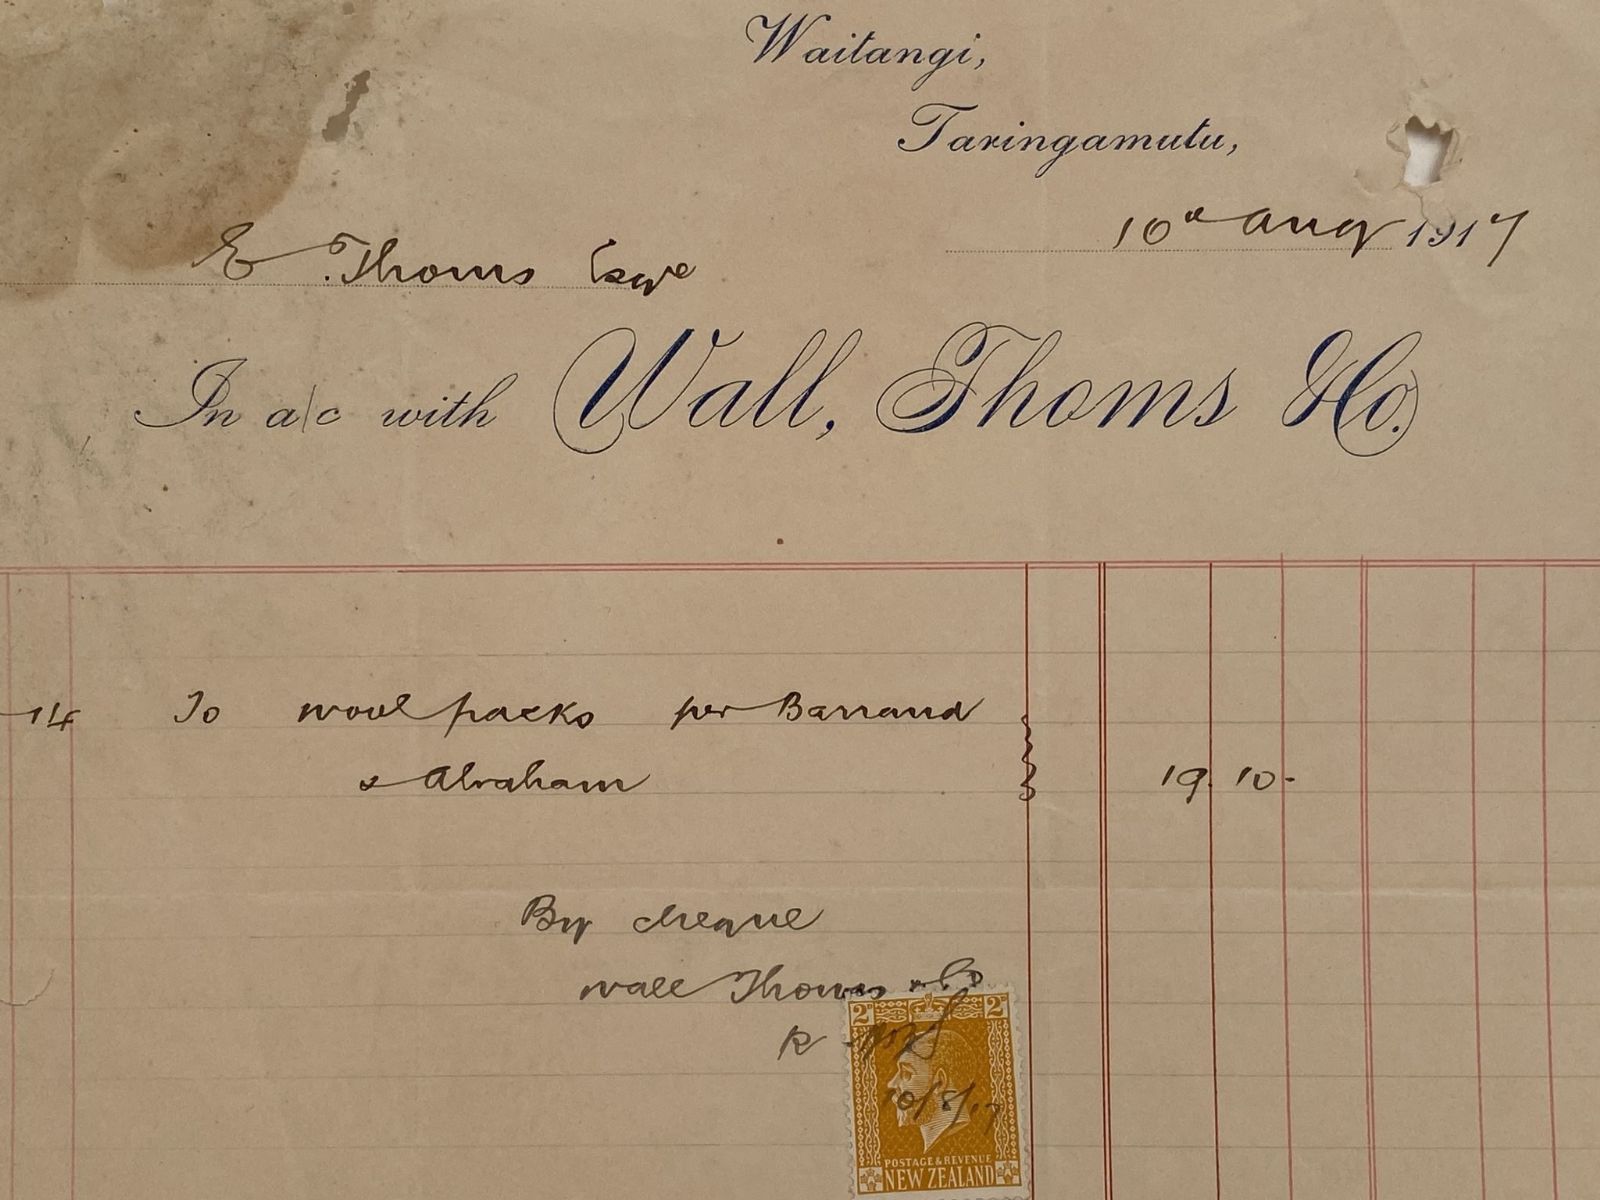 Waitangi,
Taringamutu,
10th Aug 1917
E Thoms Esqre
In a/c with Wall, Thoms & Co.
14 To wool packs per Barraud
& Abraham 19. 10-
By cheque
Wall Thoms & Co
10/8/17
2D 2D
POSTAGE & REVENUE
NEW ZEALAND